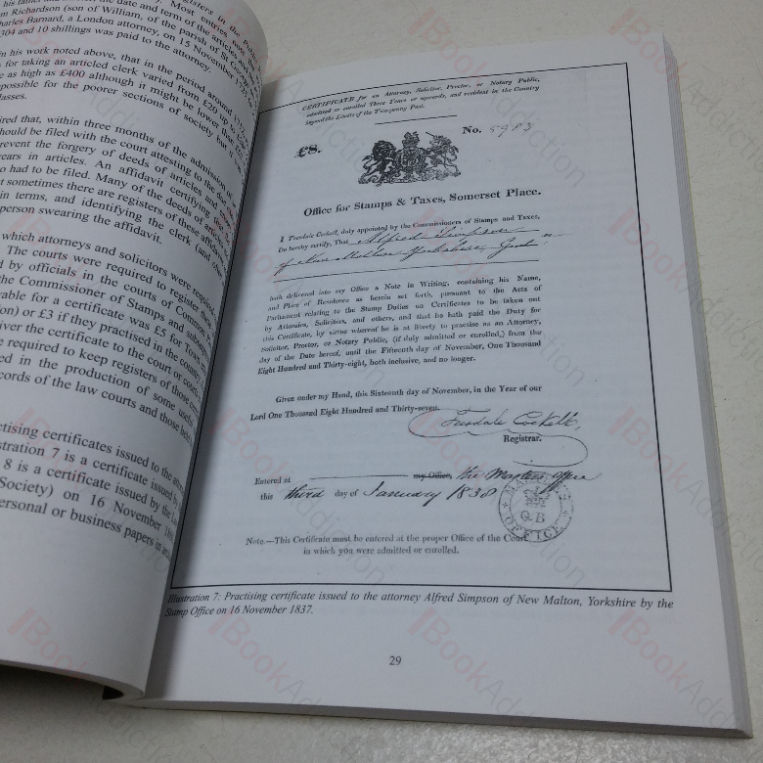 his father
the date and term of the articles
registers in the Public
Most entries
m Richardson (son of William, of the parish of St George
Charles Barnard, a London attorney, on 15 November
304 and 10 shillings was paid to the attorney.
in his work noted above, that in the period around
for taking an articled clerk varied from £20 up to
e as high as £400 although it might be lower than
possible for the poorer sections of society
lasses.
ired that, within three months of the admission of
should be filed with the court attesting to the
revent the forgery of deeds of articles and
years in articles. An affidavit certifying
o had to be filed. Many of the deeds of
t sometimes there are registers of these affidavits
in terms, and identifying the clerk (and
person swearing the affidavit.
which attorneys and solicitors were required
The courts were required to register
d by officials in the courts of Common
the Commissioner of Stamps and
able for a certificate was £5 for
on) or £3 if they practised in the country
iver the certificate to the court or
e required to keep registers of those
ed in the production of some useful
cords of the law courts and those
ctising certificates issued to the
stration 7 is a certificate issued by
8 is a certificate issued by the Law
Society) on 16 November
personal or business papers in
CERTIFICATE for an Attorney, Solicitor, Proctor, or Notary Public,
admitted or enrolled Three Years or upwards, and resident in the Country
beyond the Limits of the Twopenny Post.
£8.
No. 5983
Office for Stamps & Taxes, Somerset Place.
I Teesdale Cockell, duly appointed by the Commissioners of Stamps and Taxes,
Do hereby certify, That Alfred Simpson
of New Malton Yorkshire
hath delivered into my Office a Note in Writing, containing his Name,
and Place of Residence as herein set forth, pursuant to the Acts of
Parliament relating to the Stamp Duties on Certificates to be taken out
by Attornies, Solicitors, and others, and that he hath paid the Duty for
this Certificate, by virtue whereof he is at liberty to practise as an Attorney,
Solicitor, Proctor, or Notary Public, (if duly admitted or enrolled,) from the
day of the Date hereof, until the Fifteenth day of November, One Thousand
Eight Hundred and Thirty-eight, both inclusive, and no longer.
Given under my Hand, this Sixteenth day of November, in the Year of our
Lord One Thousand Eight Hundred and Thirty-seven.
Teesdale Cockell,
Registrar.
Entered at my Office, the Masters Office
this third day of January 1838
G.B
OFFICE
Note.—This Certificate must be entered at the proper Office of the Court
in which you were admitted or enrolled.
Illustration 7: Practising certificate issued to the attorney Alfred Simpson of New Malton, Yorkshire by the
Stamp Office on 16 November 1837.
29
BookAddiction